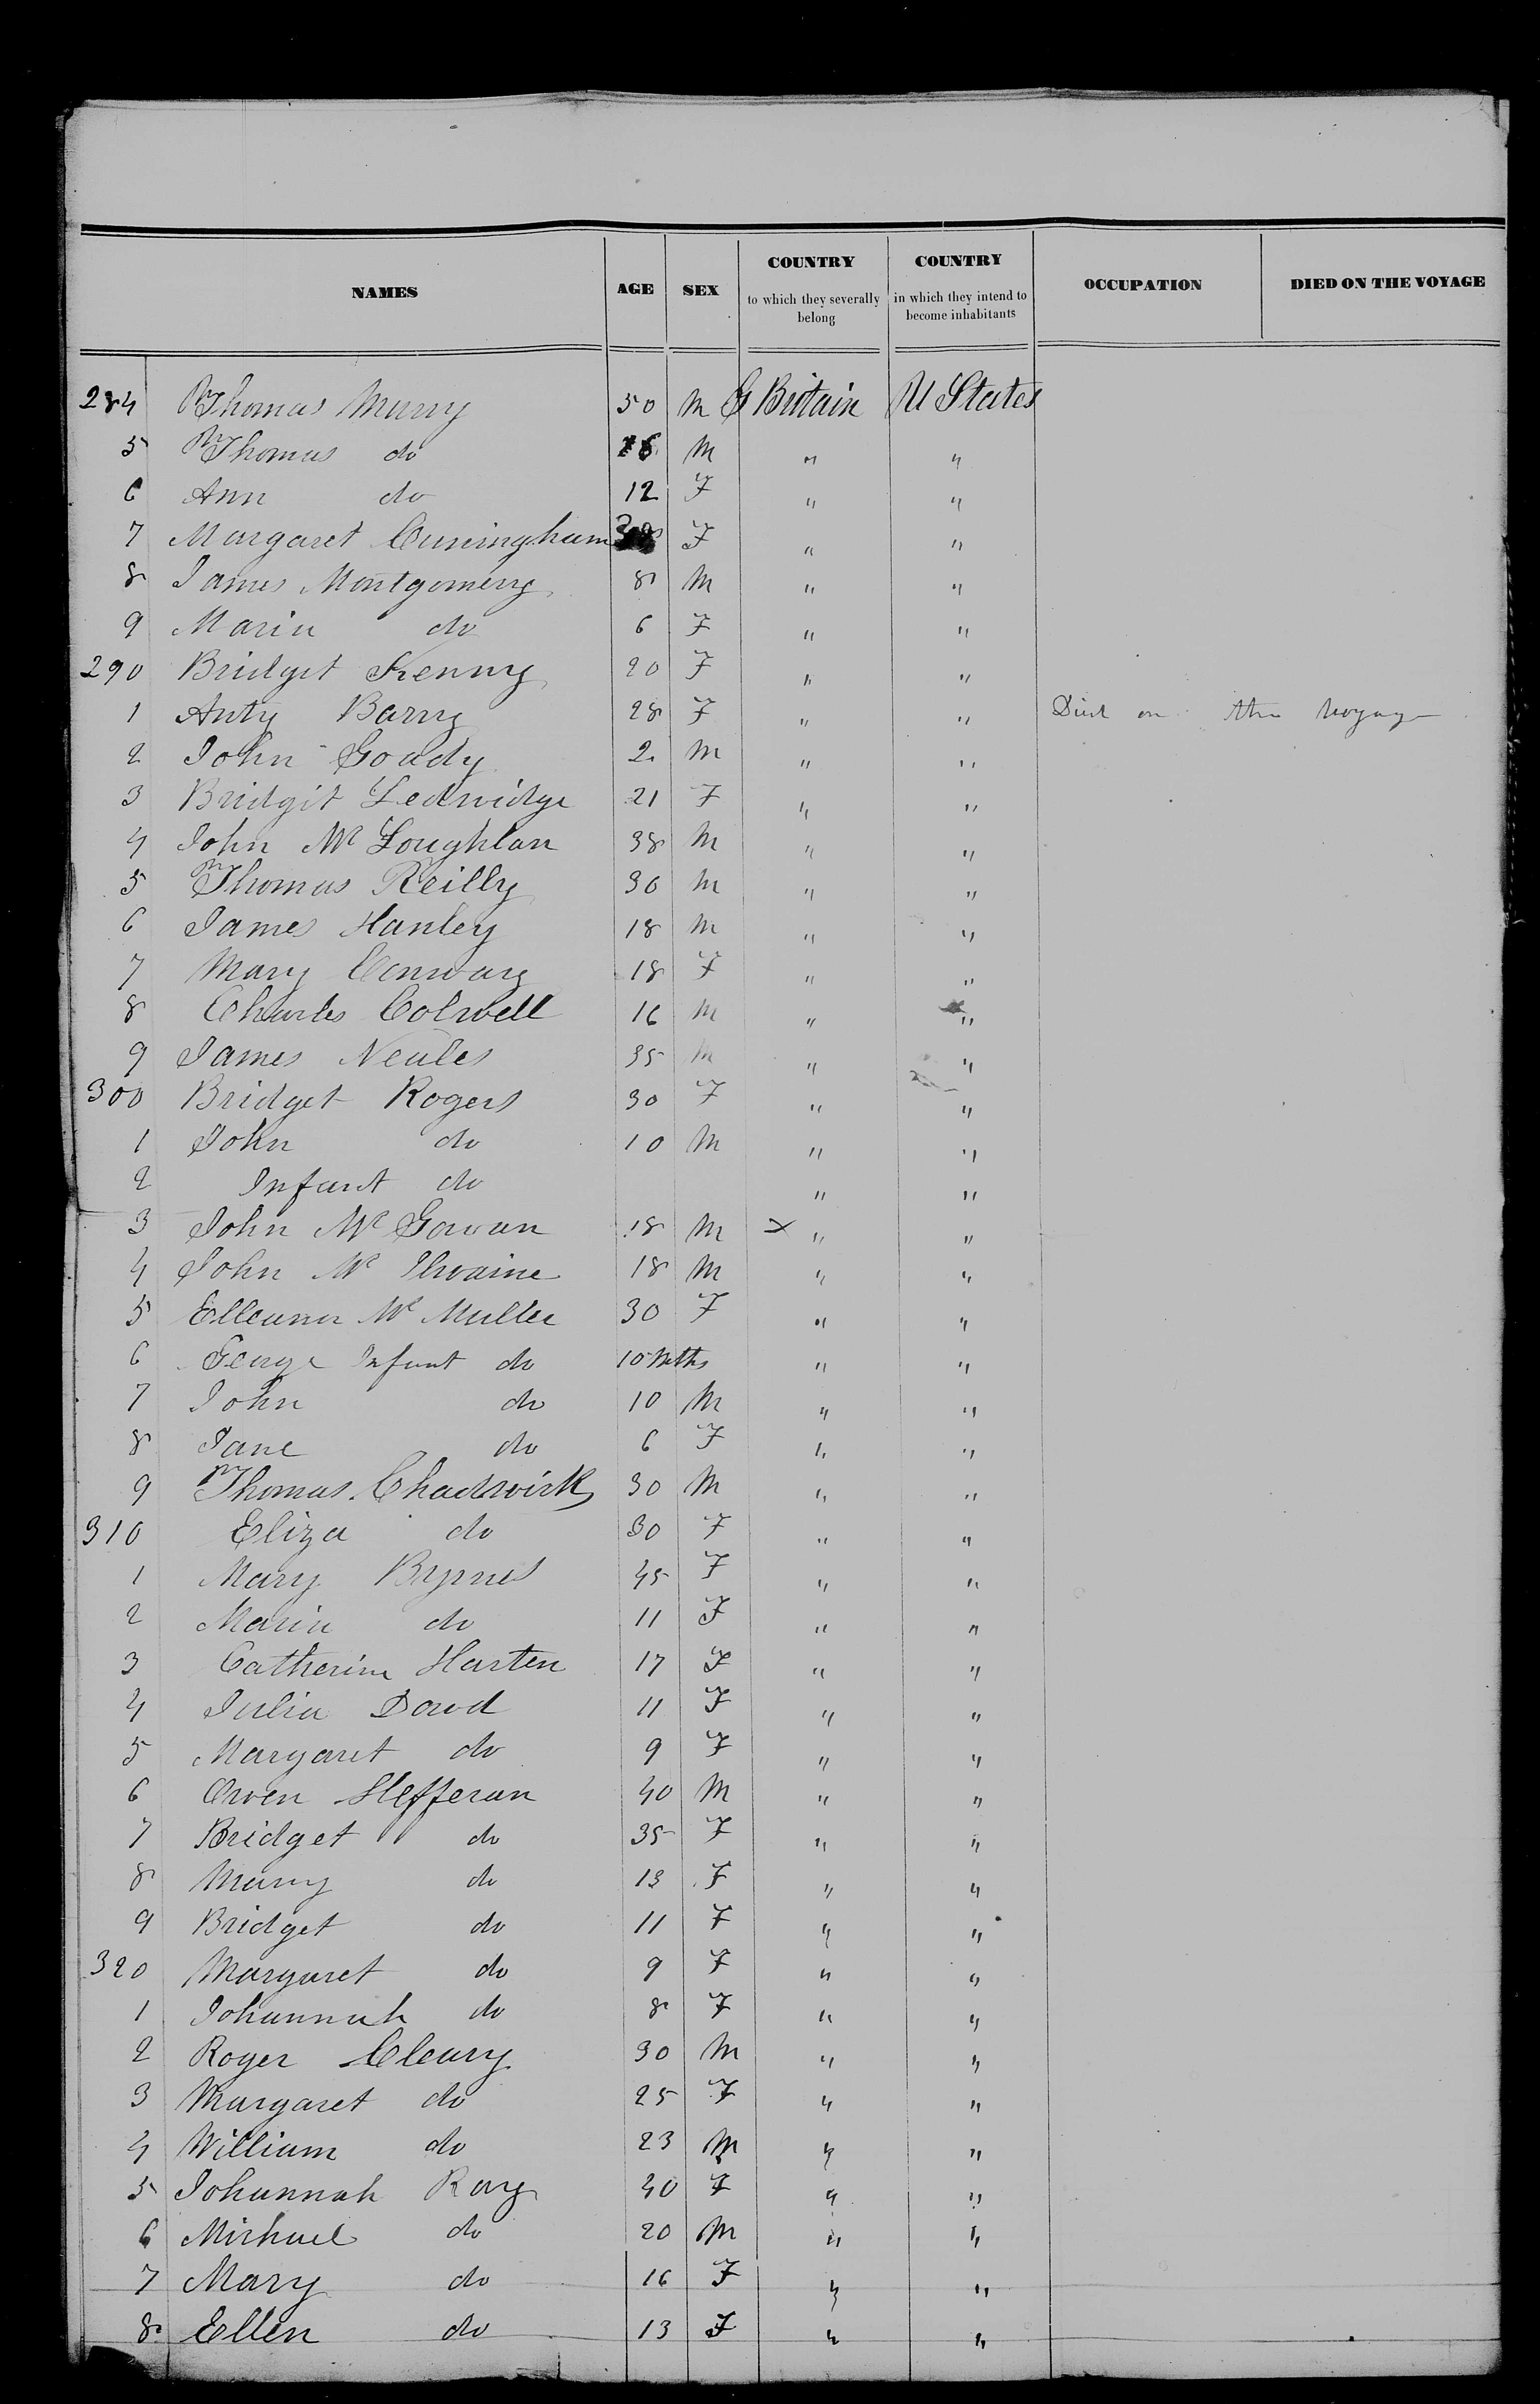 NAMES AGE SEX COUNTRY to which they severally belong COUNTRY in which they intend to become inhabitants OCCUPATION DIED ON THE VOYAGE
284 Thomas Murry 50 M G Britain U States
5 Thomas do 16 M " "
6 Ann do 12 F " "
7 Margaret Cuningham F " "
8 James Montgomery 8 M " "
9 Maria do 6 F " "
290 Bridget Kenny 20 F " "
1 Anty Barry 28 F " " Died on the voyage
2 John Goady 2 M " "
3 Bridgit Ledwidge 21 F " "
4 John Mc Loughlan 38 M " "
5 Thomas Reilly 30 M " "
6 James Hanley 18 M " "
7 Mary Conway 18 F " "
8 Charles Colwell 16 M " "
9 James Neules 35 M " "
300 Bridget Rogers 30 F " "
1 John do 10 M " "
2 Infant do " "
3 John Mc Gowan 18 M x " "
4 John Mc Ilwaine 18 M " "
5 Elleanor Mc Muller 30 F " "
6 George Infant do 10 Mths " "
7 John do 10 M " "
8 Jane do 6 F " "
9 Thomas Chadwick 30 M " "
310 Eliza do 30 F " "
1 Mary Byrnes 45 F " "
2 Maria do 11 F " "
3 Catherine Harten 17 F " "
4 Julia Dowd 11 F " "
5 Margaret do 9 F " "
6 Owen Hefferan 40 M " "
7 Bridget do 35 F " "
8 Mary do 13 F " "
9 Bridget do 11 F " "
320 Margaret do 9 F " "
1 Johannah do 8 F " "
2 Roger Cleary 30 M " "
3 Margaret do 25 F " "
4 William do 23 M " "
5 Johannah Ray 40 F " "
6 Michael do 20 M " "
7 Mary do 16 F " "
8 Ellen do 13 F " "